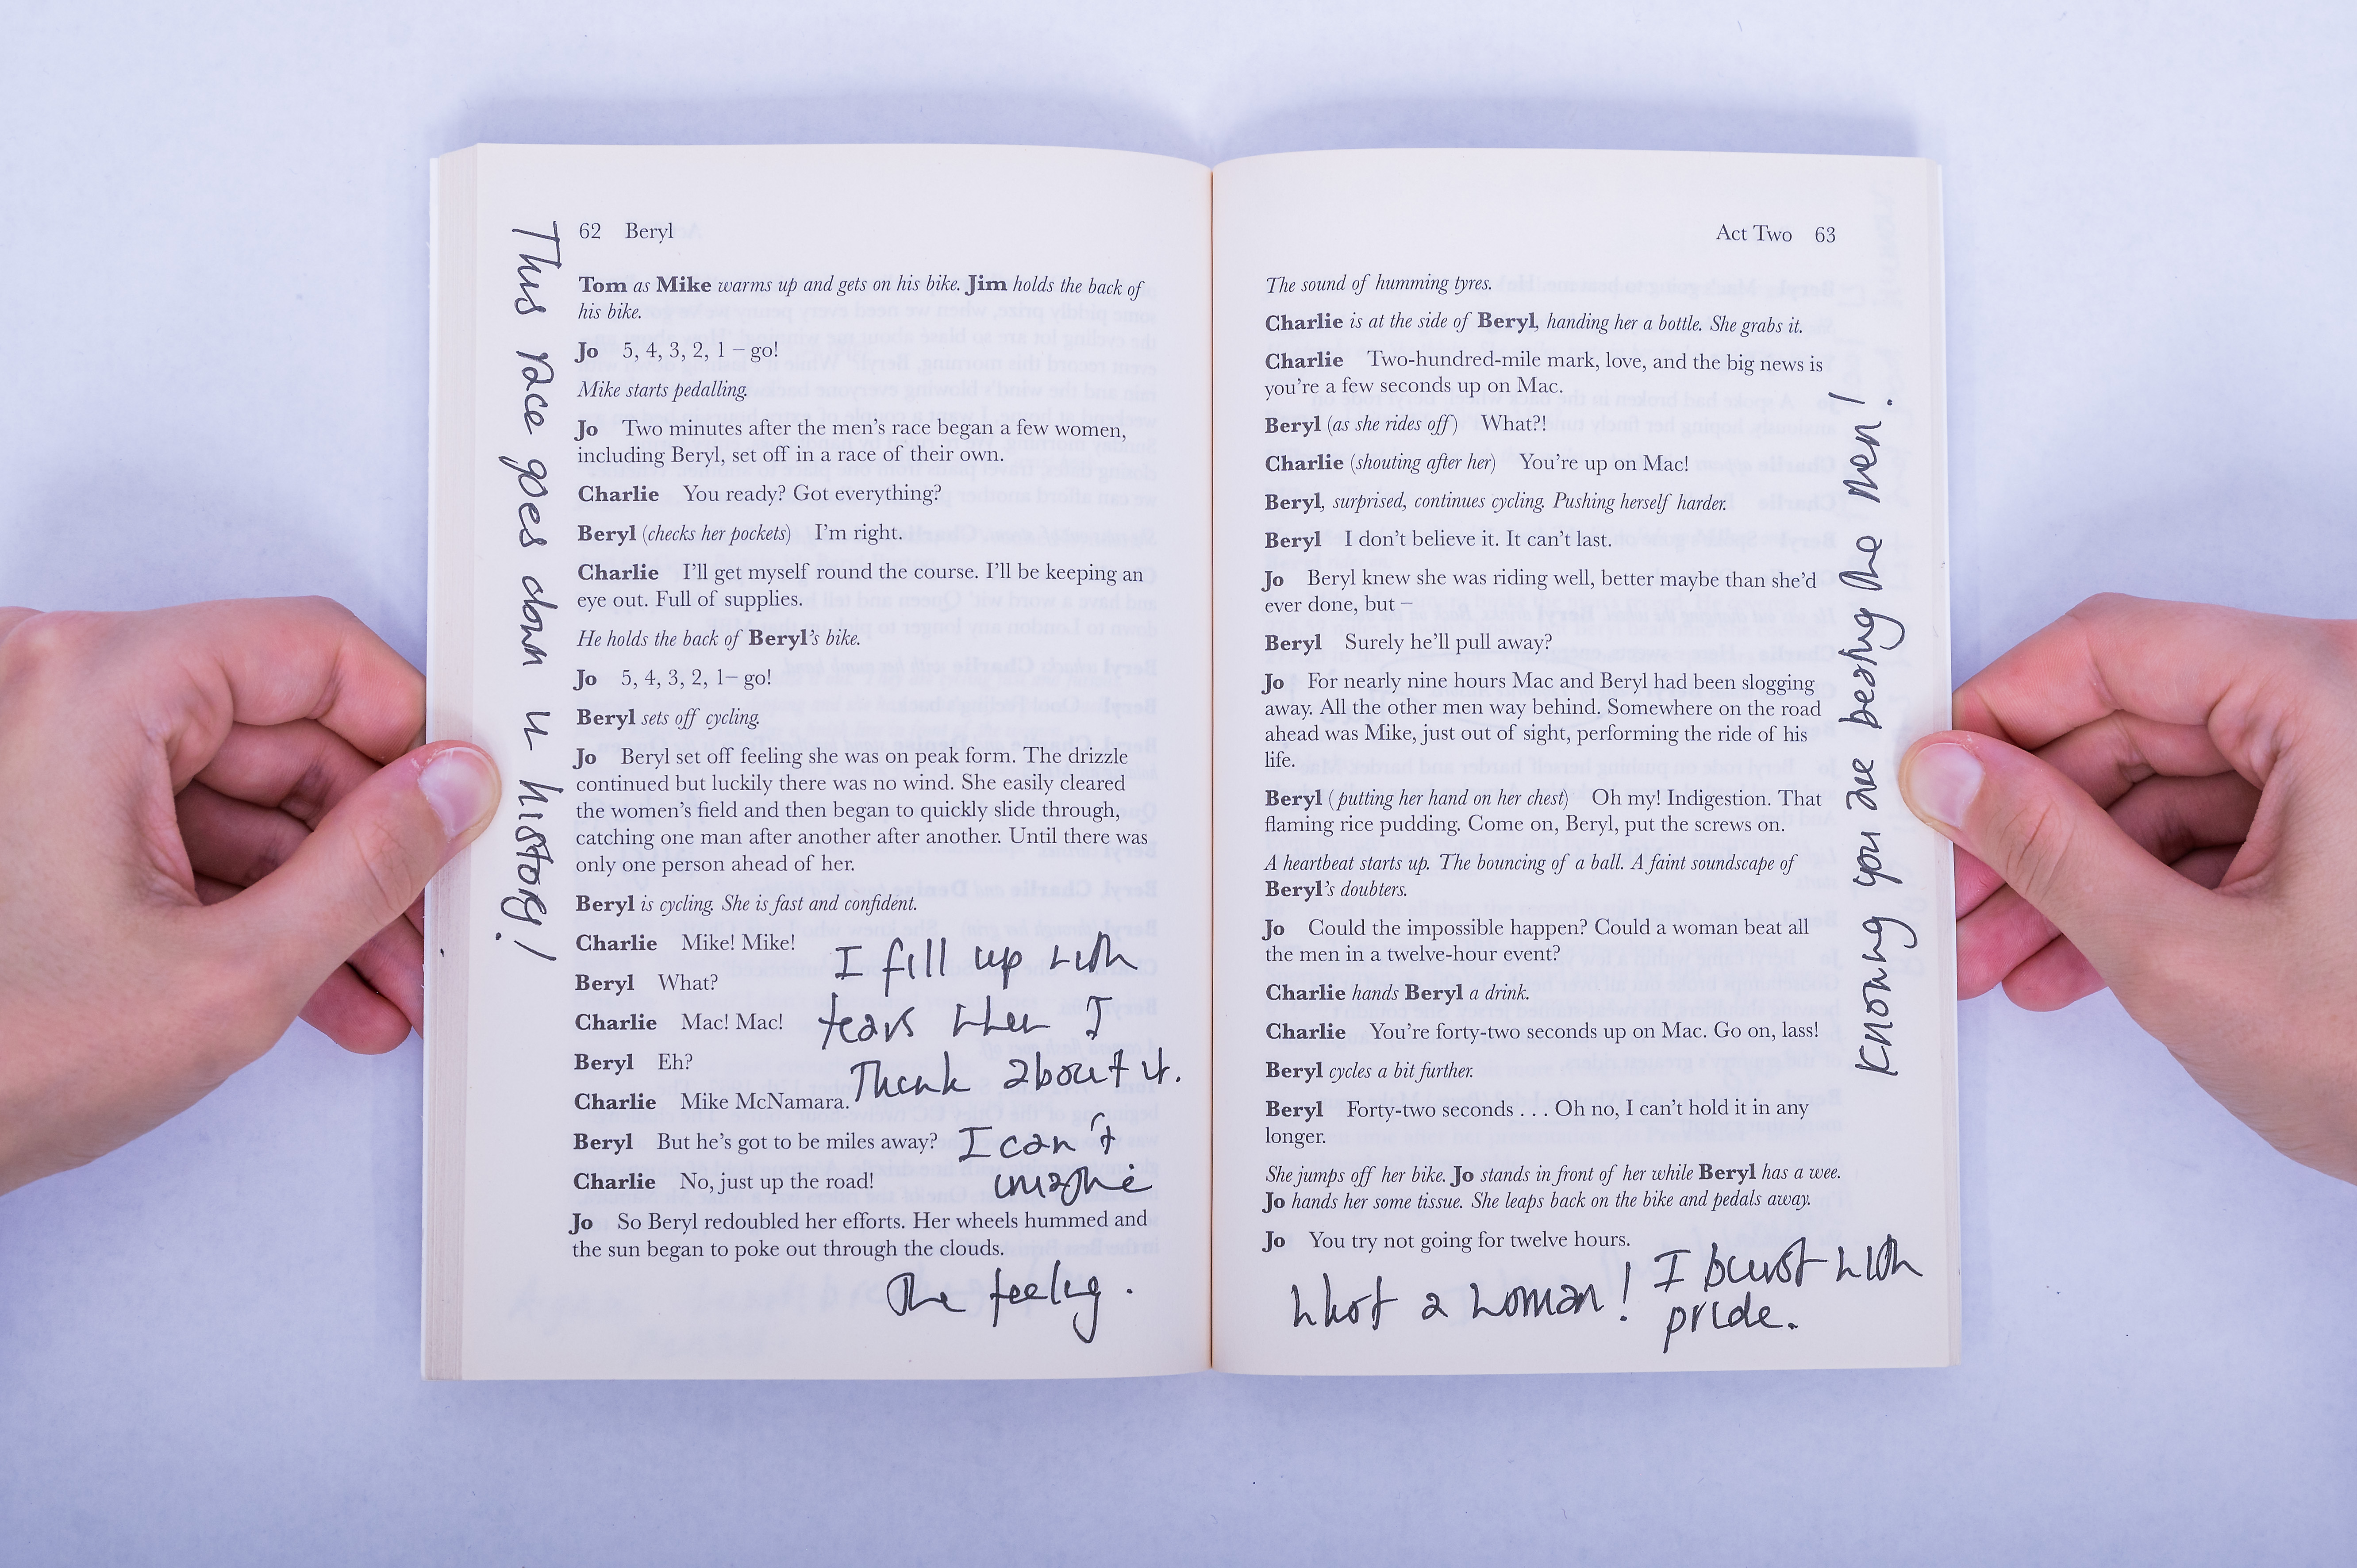 62 Beryl
Tom as Mike warms up and gets on his bike. Jim holds the back of
his bike.
Jo 5, 4, 3, 2, 1 – go!
Mike starts pedalling.
Jo Two minutes after the men's race began a few women,
including Beryl, set off in a race of their own.
Charlie You ready? Got everything?
Beryl (checks her pockets) I'm right.
Charlie I'll get myself round the course. I'll be keeping an
eye out. Full of supplies.
He holds the back of Beryl's bike.
Jo 5, 4, 3, 2, 1– go!
Beryl sets off cycling.
Jo Beryl set off feeling she was on peak form. The drizzle
continued but luckily there was no wind. She easily cleared
the women's field and then began to quickly slide through,
catching one man after another after another. Until there was
only one person ahead of her.
Beryl is cycling. She is fast and confident.
Charlie Mike! Mike!
Beryl What?
Charlie Mac! Mac!
Beryl Eh?
Charlie Mike McNamara.
Beryl But he's got to be miles away?
Charlie No, just up the road!
Jo So Beryl redoubled her efforts. Her wheels hummed and
the sun began to poke out through the clouds.
This race goes down in history!
I fill up with
tears when I
Think about it.
I can't
imagine
The feeling.
Act Two 63
The sound of humming tyres.
Charlie is at the side of Beryl, handing her a bottle. She grabs it.
Charlie Two-hundred-mile mark, love, and the big news is
you're a few seconds up on Mac.
Beryl (as she rides off) What?!
Charlie (shouting after her) You're up on Mac!
Beryl, surprised, continues cycling. Pushing herself harder.
Beryl I don't believe it. It can't last.
Jo Beryl knew she was riding well, better maybe than she'd
ever done, but –
Beryl Surely he'll pull away?
Jo For nearly nine hours Mac and Beryl had been slogging
away. All the other men way behind. Somewhere on the road
ahead was Mike, just out of sight, performing the ride of his
life.
Beryl (putting her hand on her chest) Oh my! Indigestion. That
flaming rice pudding. Come on, Beryl, put the screws on.
A heartbeat starts up. The bouncing of a ball. A faint soundscape of
Beryl's doubters.
Jo Could the impossible happen? Could a woman beat all
the men in a twelve-hour event?
Charlie hands Beryl a drink.
Charlie You're forty-two seconds up on Mac. Go on, lass!
Beryl cycles a bit further.
Beryl Forty-two seconds . . . Oh no, I can't hold it in any
longer.
She jumps off her bike. Jo stands in front of her while Beryl has a wee.
Jo hands her some tissue. She leaps back on the bike and pedals away.
Jo You try not going for twelve hours.
What a woman! I burst with
pride.
Knowing you are beating the men!